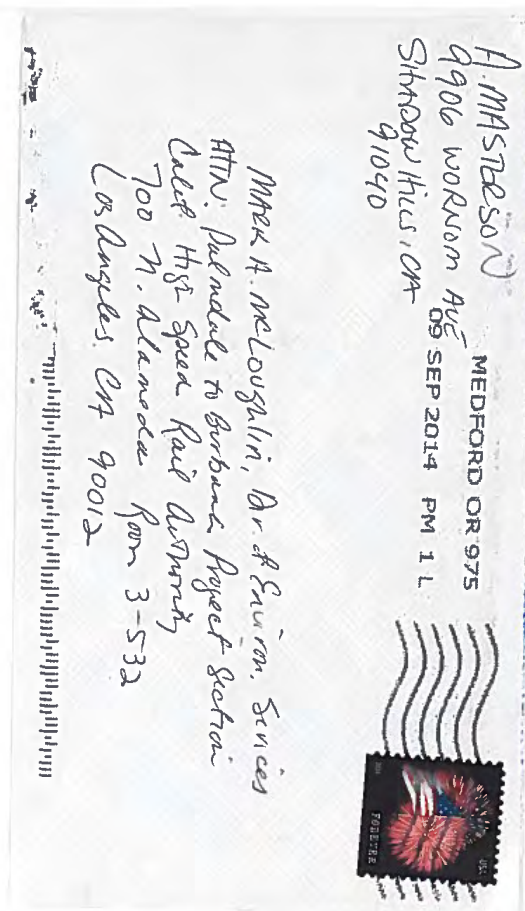 A. MASTERSON
9906 WORNOM AVE
SHADOW HILLS, CA
91040
MEDFORD OR 975
09 SEP 2014 PM 1 L
USA
FOREVER
MARK A. McLoughlin, Dir. of Environ. Sevices
ATTN: Palmdale to Burbank Project Section
Calif High Speed Rail Authority
700 N. Alameda Room 3-532
Los Angeles, CA 90012